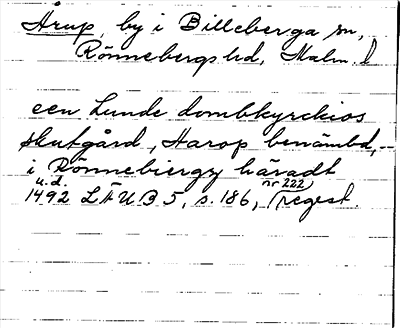 Årup, by i Billeberga sn,
Rönnebergs hd, Malm. l
een Lunde dombkyrckios
skutgård, Harop benämbd, --
i Rönnebiergz häradt
u.d. nr 222
1492 LÄUB 5, s. 186, (regest.